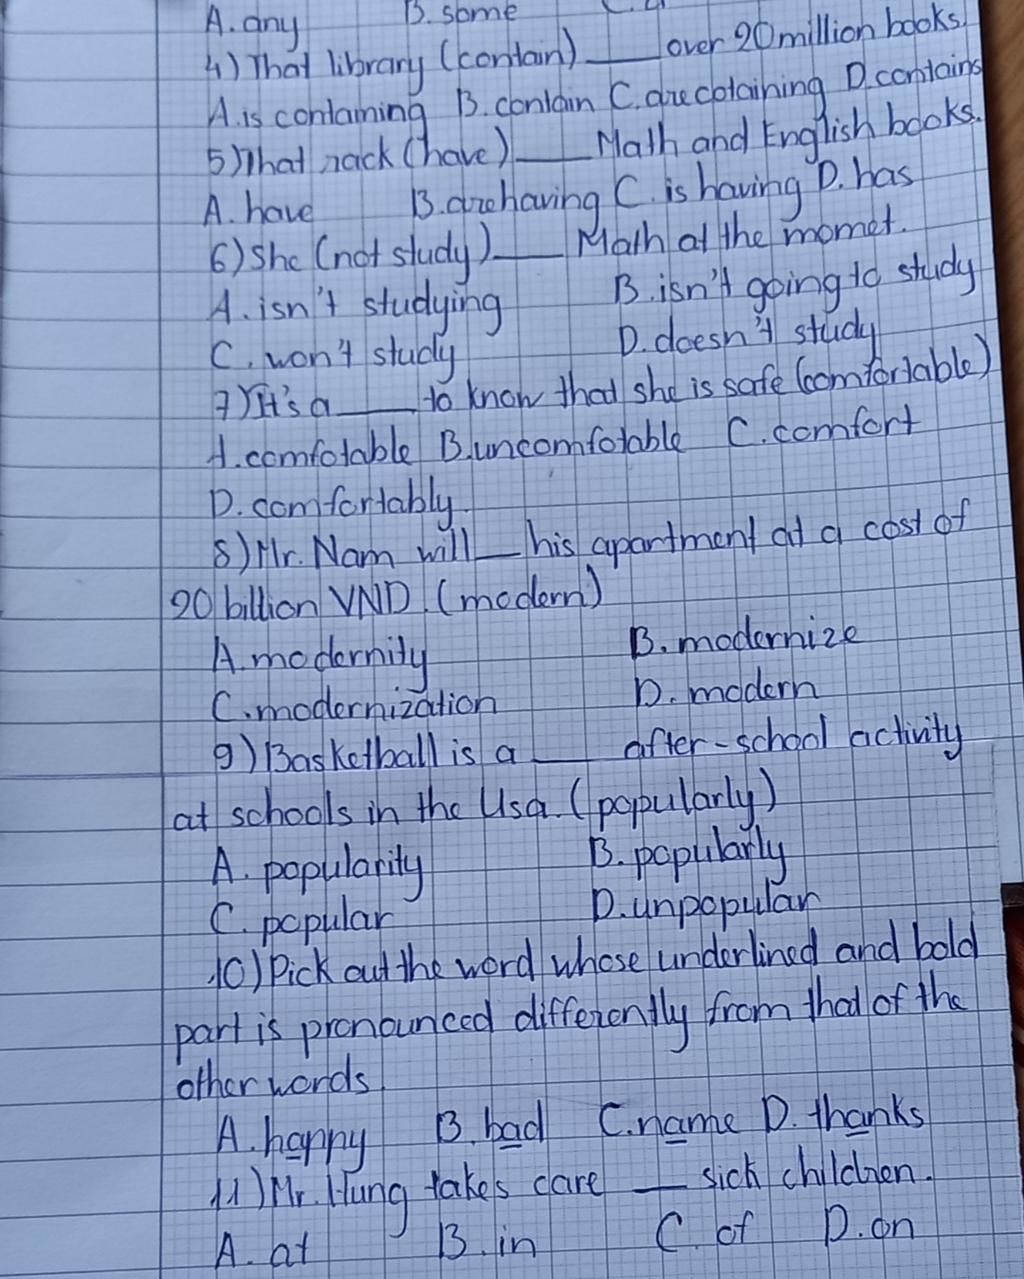 A. any B. some
4) That library (contain) ___ over 20 million books.
A. is contaming B. contain C. are cotaining D. contains
5) That rack (have) ___ Math and English books.
A. have B. are having C. is having D. has
6) She (not study) ___ Math at the momet.
A. isn't studying B. isn't going to study
C. won't study D. doesn't study
7) It's a ___ to know that she is safe (comfortable)
A. comfotable B. uncomfotable C. comfort
D. comfortably
8) Mr. Nam will ___ his apartment at a cost of
20 billion VND. (modern)
A. modernity B. modernize
C. modernization D. modern
9) Basketball is a ___ after-school activity
at schools in the Usa. (popularly)
A. popularity B. popularly
C. popular D. unpopular
10) Pick out the word whose underlined and bold
part is pronounced differently from that of the
other words
A. happy B. bad C. name D. thanks
11) Mr. Hung takes care ___ sick children.
A. at B. in C. of D. on